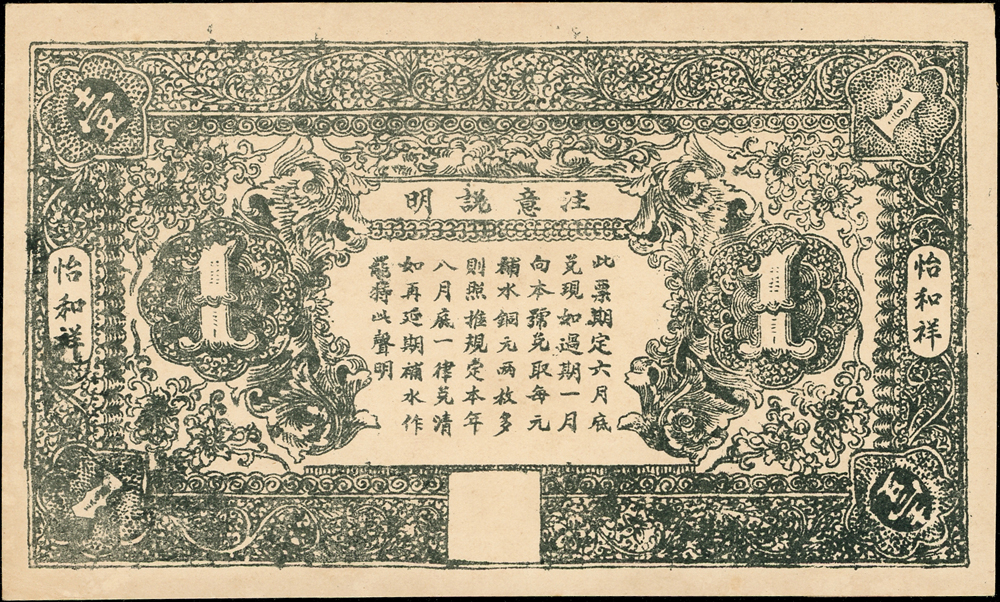 壹
1
注意説明
怡和祥
怡和祥
1
1
此票期定六月底
兑現如過期一月
向本號兑取每元
補水銅元两枚多
則照推規定本年
八月底一律兑清
如再延期補水作
罷特此聲明
1
壹